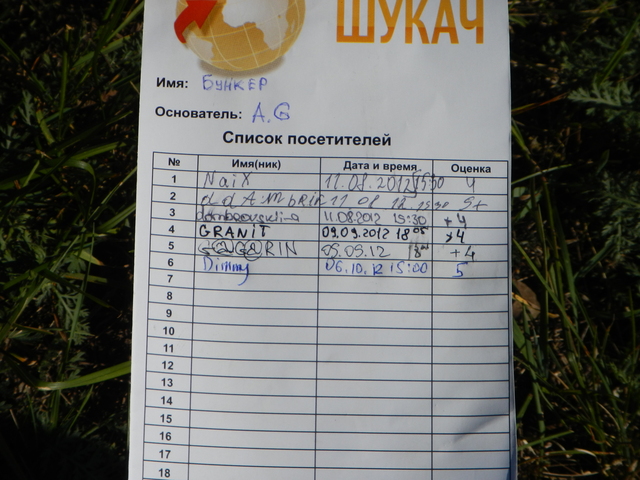 ШУКАЧ
Имя: БУНКЕР
Основатель: A.G
Список посетителей
№ Имя(ник) Дата и время Оценка
1 NaiX 11.08.2012 1530 4
2 11 08 12 5+
3 11.08.2012 15:30 +4
4 GRANIT 09.09.2012 18 4
5 G@G@RIN 09.09.12 +4
6 Dimmy 06.10.12 15:00 5
7
8
9
10
11
12
13
14
15
16
17
18